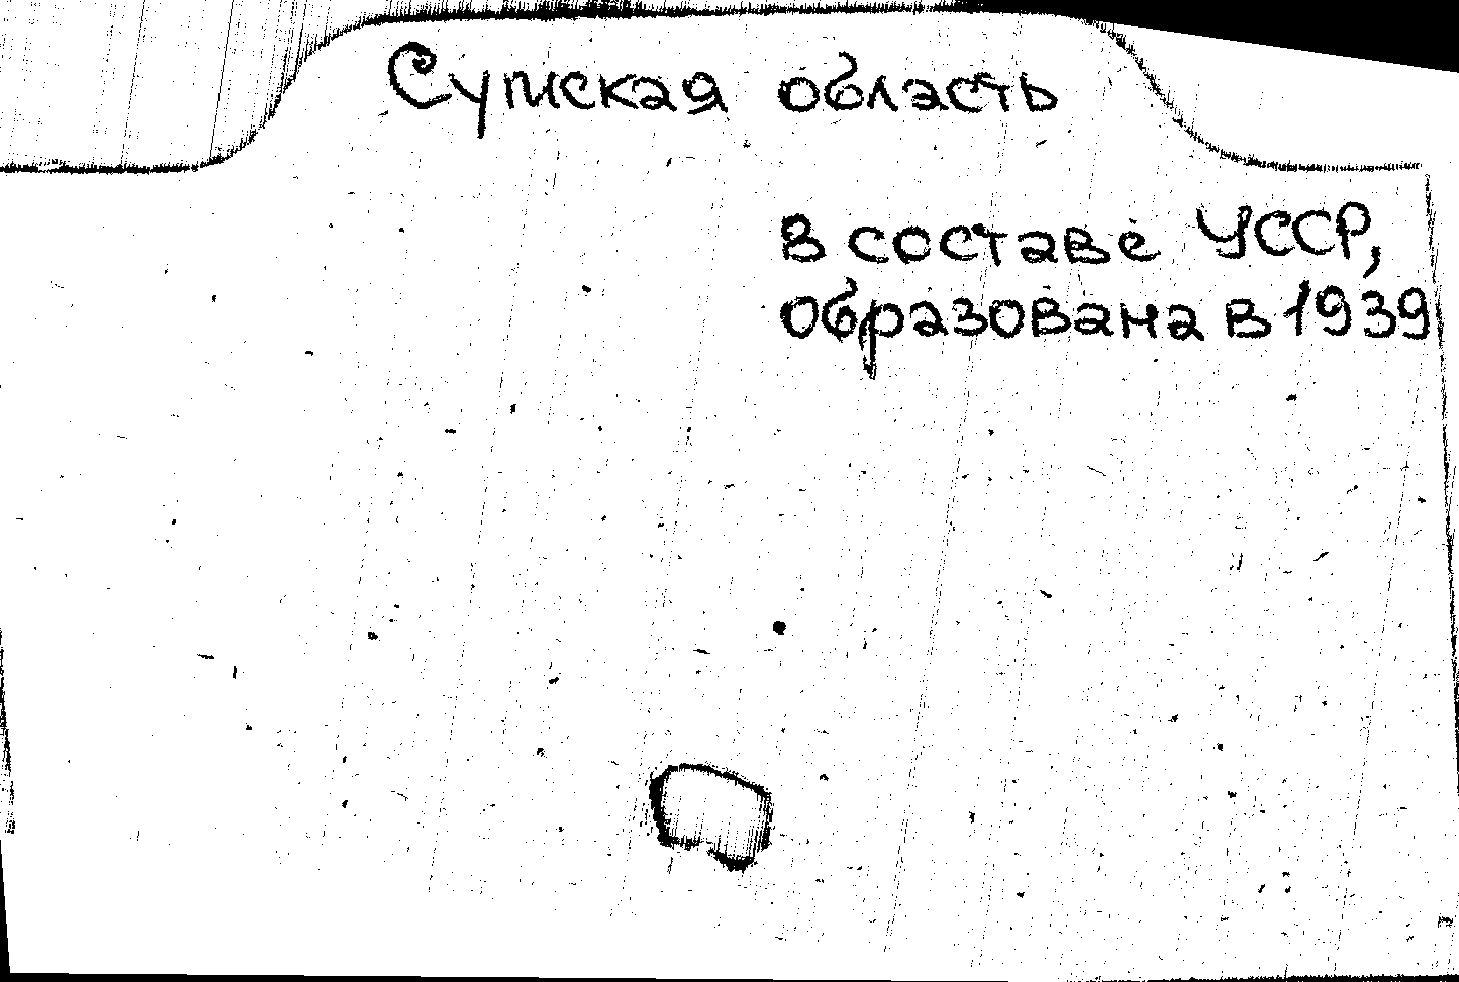 Сумская область
в составе УССР,
образована в 1939